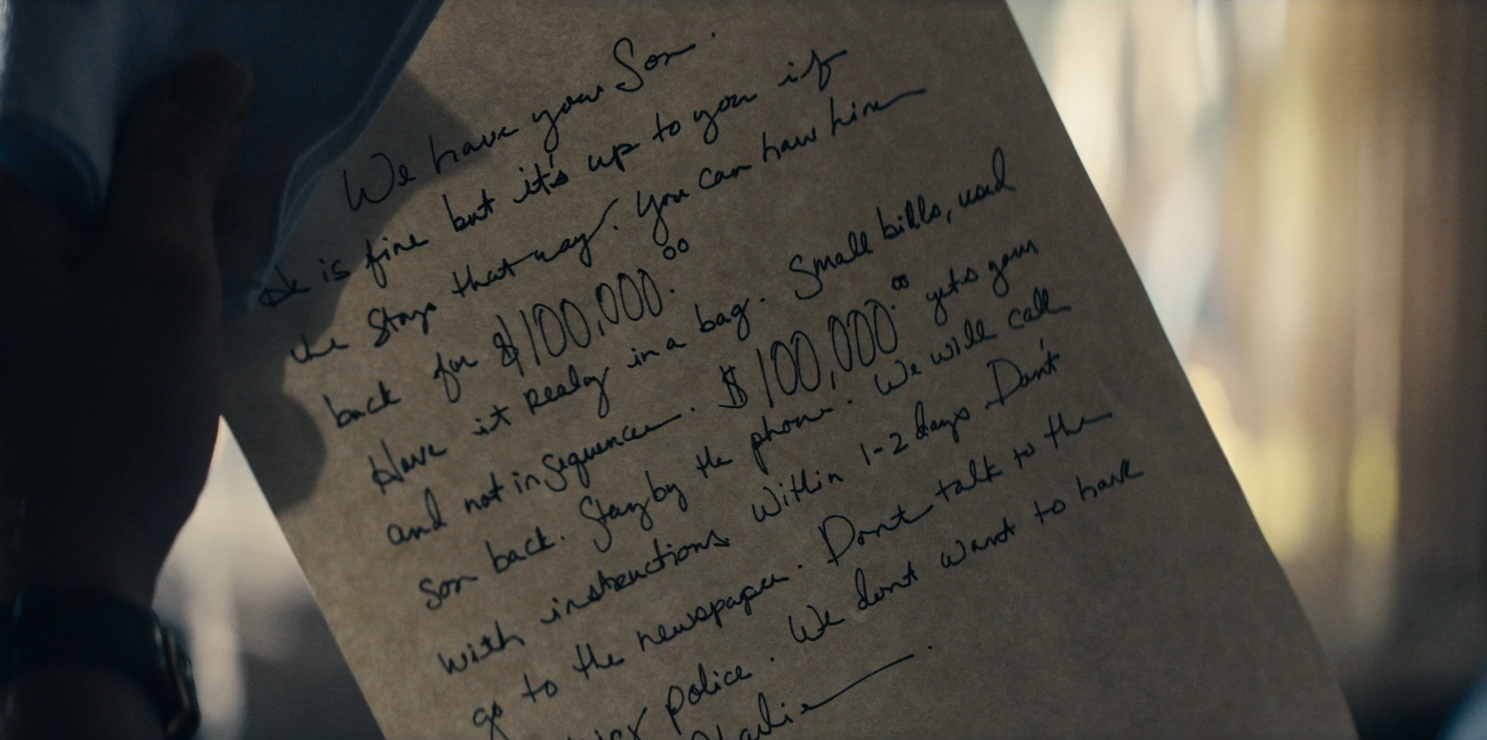 We have your Son.
He is fine but it's up to you if
he Stays that way. You can have him
back for $100,000.00
Have it Ready in a bag. Small bills, used
and not in Sequence. $100,000.00 gets your
Son back. Stay by the phone. We will call
with instructions within 1-2 days. Don't
go to the newspaper. Don't talk to the
police. We dont want to have
Charlie